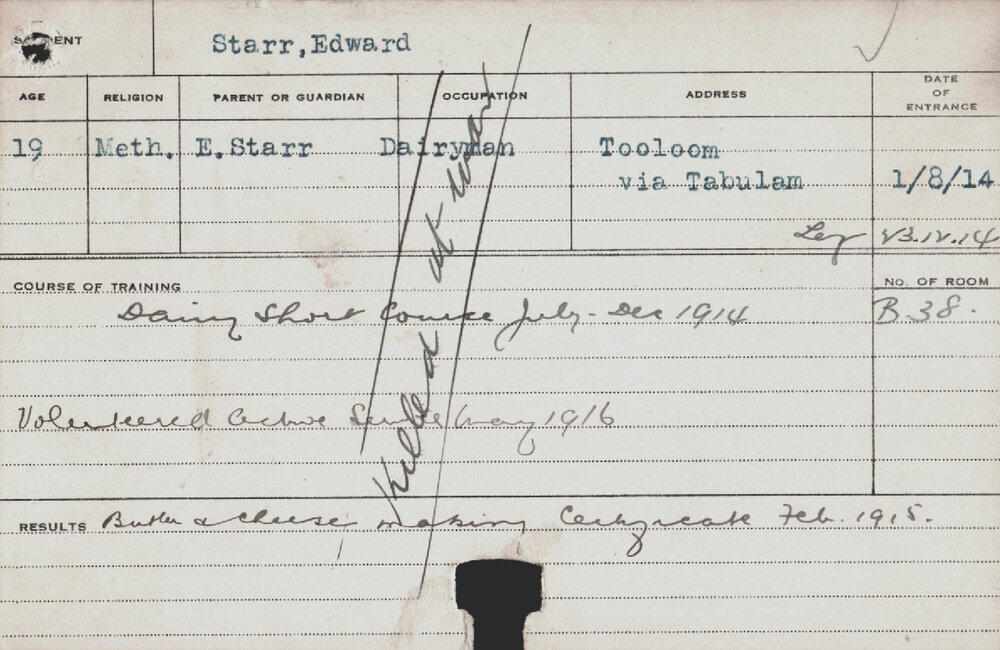 STUDENT Starr,Edward
AGE RELIGION PARENT OR GUARDIAN OCCUPATION ADDRESS DATE OF ENTRANCE
19 Meth. E.Starr Dairyman Tooloom
via Tabulam 1/8/14
23.12.14
COURSE OF TRAINING NO. OF ROOM
Dairy Short Course July - Dec 1914 B.38.
Volunteered Active Service May 1916
Killed at war
RESULTS Butter & Cheese making Certificate Feb. 1915.